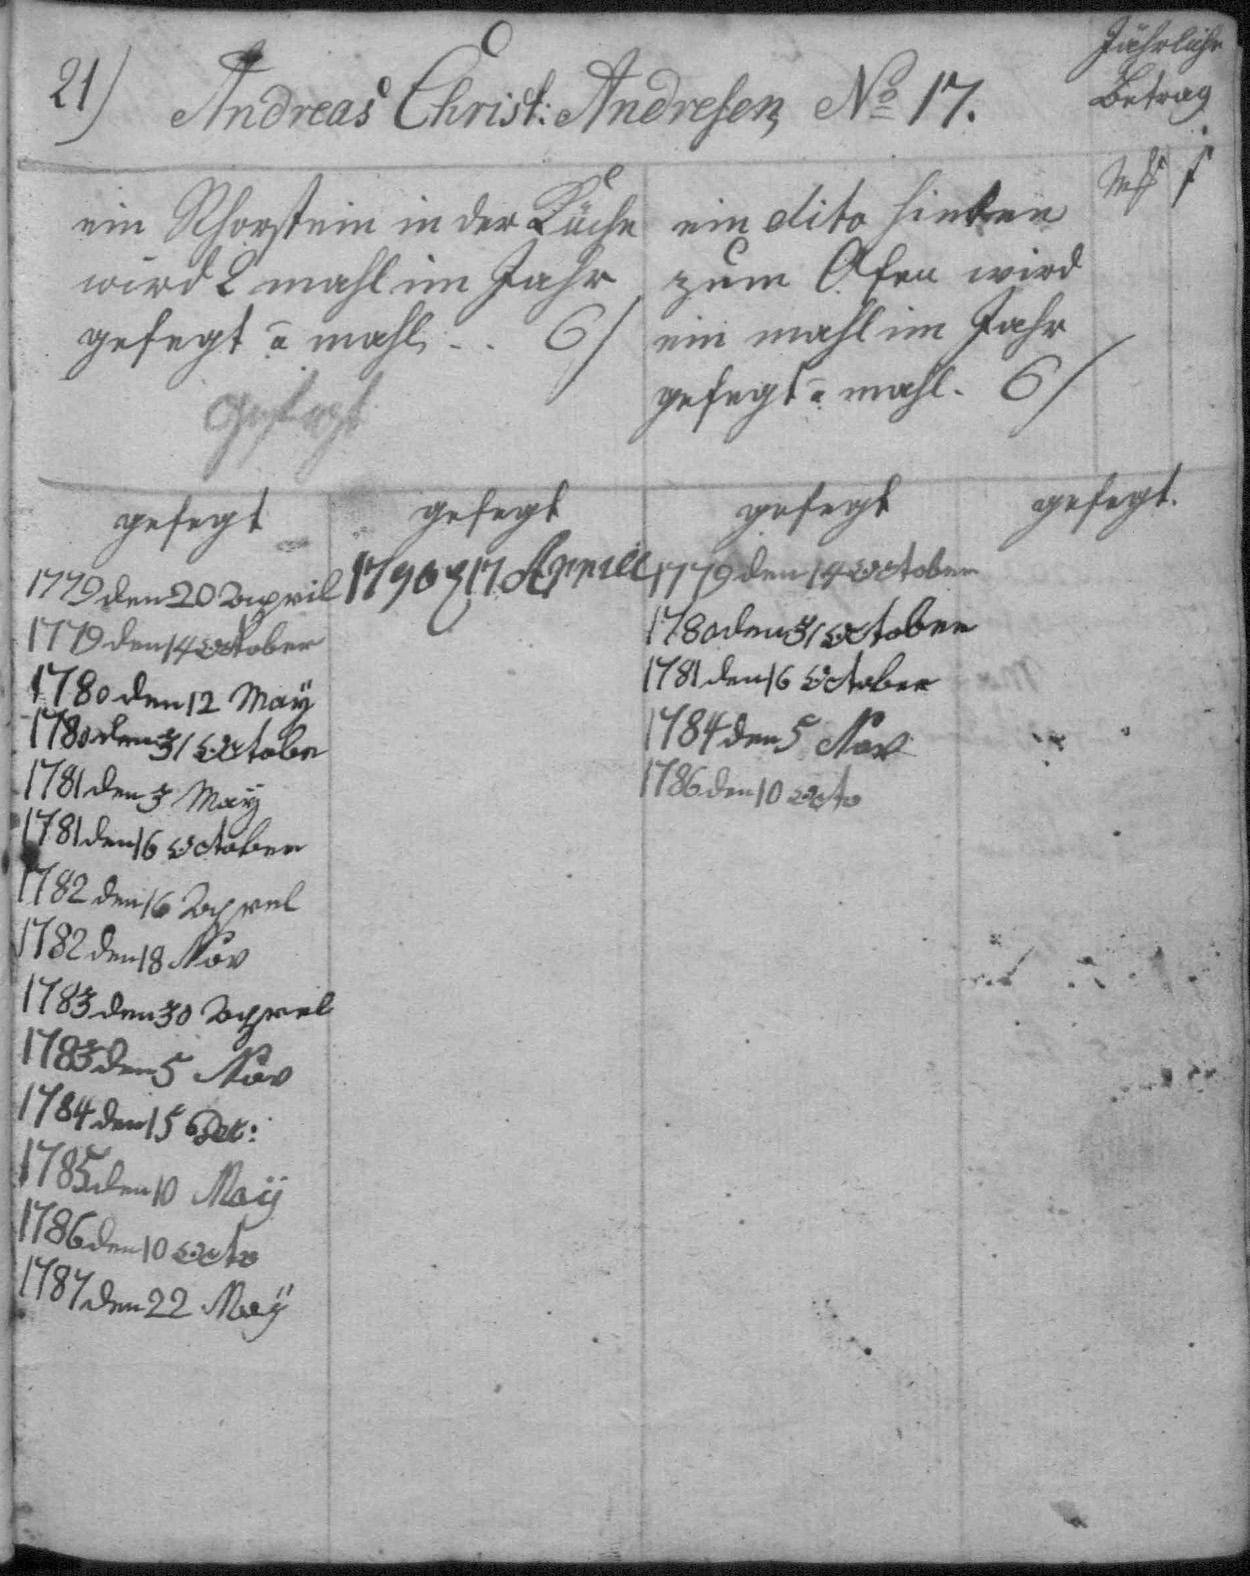 21) Andreas Christ: Andresen No 17.
Jährliche
Betrag
ein Schorstein in der Küche
wird 2 mahl im Jahr
gefegt a mahl - - 6 ß
gefegt
ein dito hinten
zum Ofen wird
ein mahl im Jahr
gefegt a mahl - 6 ß
gefegt
1779 den 20 Apripril
1779 den 14 October
1780 den 12 May
1780 den 31 October
1781 den 3 May
1781 den 16 October
1782 den 16 Aprel
1782 den 18 Nov
1783 den 30 Aprel
1783 den 5 Nov
1784 den 15
1785 den 10 May
1786 den 10 Octo
1787 den 22 May
gefegt
17 Aprill
gefegt
1779 den 14 October
1780 den 31 October
1781 den 16 October
1784 den 5 Nov
1786 den 10 Octo
gefegt.